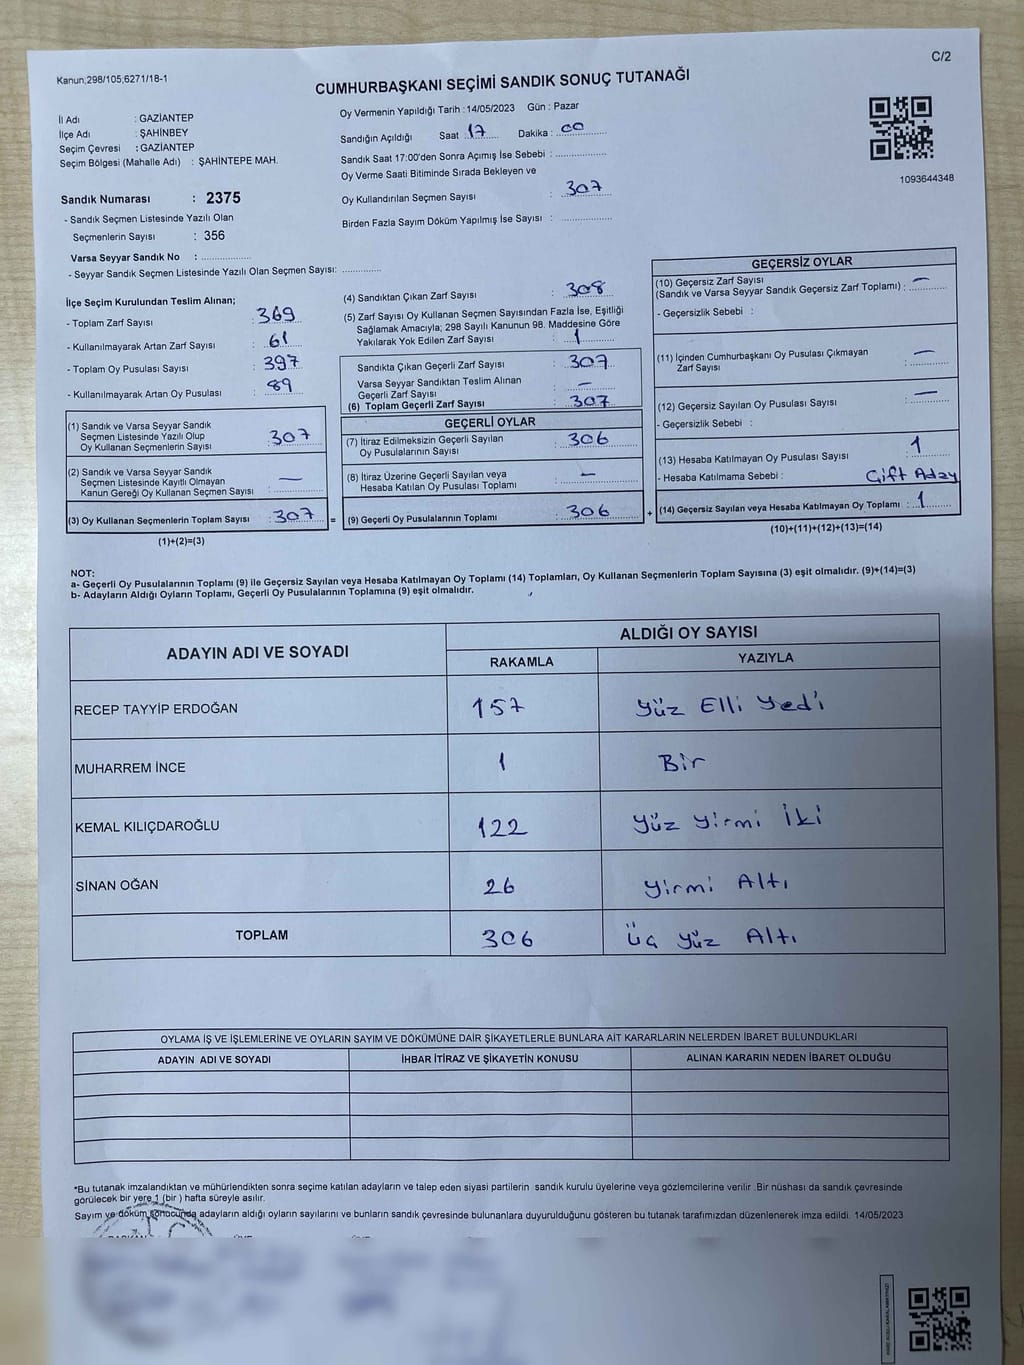 Kanun;298/105;6271/18-1
C/2
CUMHURBAŞKANI SEÇİMİ SANDIK SONUÇ TUTANAĞI
İl Adı : GAZİANTEP
İlçe Adı : ŞAHİNBEY
Seçim Çevresi : GAZİANTEP
Seçim Bölgesi (Mahalle Adı) : ŞAHİNTEPE MAH.
Sandık Numarası : 2375
- Sandık Seçmen Listesinde Yazılı Olan
Seçmenlerin Sayısı : 356
Varsa Seyyar Sandık No : ..................
- Seyyar Sandık Seçmen Listesinde Yazılı Olan Seçmen Sayısı: ..............
Oy Vermenin Yapıldığı Tarih : 14/05/2023 Gün : Pazar
Sandığın Açıldığı Saat : 17 Dakika : 00
Sandık Saat 17:00'den Sonra Açımış İse Sebebi : ..................
Oy Verme Saati Bitiminde Sırada Bekleyen ve
Oy Kullandırılan Seçmen Sayısı : 307
Birden Fazla Sayım Döküm Yapılmış İse Sayısı : ..................
1093644348
İlçe Seçim Kurulundan Teslim Alınan;
- Toplam Zarf Sayısı : 369
- Kullanılmayarak Artan Zarf Sayısı : 61
- Toplam Oy Pusulası Sayısı : 397
- Kullanılmayarak Artan Oy Pusulası : 89
(1) Sandık ve Varsa Seyyar Sandık
Seçmen Listesinde Yazılı Olup
Oy Kullanan Seçmenlerin Sayısı : 307
(2) Sandık ve Varsa Seyyar Sandık
Seçmen Listesinde Kayıtlı Olmayan
Kanun Gereği Oy Kullanan Seçmen Sayısı : —
(3) Oy Kullanan Seçmenlerin Toplam Sayısı : 307 =
(1)+(2)=(3)
(4) Sandıktan Çıkan Zarf Sayısı : 308
(5) Zarf Sayısı Oy Kullanan Seçmen Sayısından Fazla İse, Eşitliği
Sağlamak Amacıyla; 298 Sayılı Kanunun 98. Maddesine Göre
Yakılarak Yok Edilen Zarf Sayısı : 1
Sandıkta Çıkan Geçerli Zarf Sayısı : 307
Varsa Seyyar Sandıktan Teslim Alınan
Geçerli Zarf Sayısı : —
(6) Toplam Geçerli Zarf Sayısı : 307
GEÇERLİ OYLAR
(7) İtiraz Edilmeksizin Geçerli Sayılan
Oy Pusulalarının Sayısı : 306
(8) İtiraz Üzerine Geçerli Sayılan veya
Hesaba Katılan Oy Pusulası Toplamı : —
(9) Geçerli Oy Pusulalarının Toplamı : 306 +
GEÇERSİZ OYLAR
(10) Geçersiz Zarf Sayısı
(Sandık ve Varsa Seyyar Sandık Geçersiz Zarf Toplamı) : —
- Geçersizlik Sebebi :
(11) İçinden Cumhurbaşkanı Oy Pusulası Çıkmayan
Zarf Sayısı : —
(12) Geçersiz Sayılan Oy Pusulası Sayısı : —
- Geçersizlik Sebebi :
(13) Hesaba Katılmayan Oy Pusulası Sayısı : 1
- Hesaba Katılmama Sebebi : Çift Aday
(14) Geçersiz Sayılan veya Hesaba Katılmayan Oy Toplamı : 1
(10)+(11)+(12)+(13)=(14)
NOT:
a- Geçerli Oy Pusulalarının Toplamı (9) ile Geçersiz Sayılan veya Hesaba Katılmayan Oy Toplamı (14) Toplamları, Oy Kullanan Seçmenlerin Toplam Sayısına (3) eşit olmalıdır. (9)+(14)=(3)
b- Adayların Aldığı Oyların Toplamı, Geçerli Oy Pusulalarının Toplamına (9) eşit olmalıdır.
ADAYIN ADI VE SOYADI ALDIĞI OY SAYISI
RAKAMLA YAZIYLA
RECEP TAYYİP ERDOĞAN 157 Yüz Elli Yedi
MUHARREM İNCE 1 Bir
KEMAL KILIÇDAROĞLU 122 Yüz Yirmi İki
SİNAN OĞAN 26 Yirmi Altı
TOPLAM 306 Üç Yüz Altı
OYLAMA İŞ VE İŞLEMLERİNE VE OYLARIN SAYIM VE DÖKÜMÜNE DAİR ŞİKAYETLERLE BUNLARA AİT KARARLARIN NELERDEN İBARET BULUNDUKLARI
ADAYIN ADI VE SOYADI İHBAR İTİRAZ VE ŞİKAYETİN KONUSU ALINAN KARARIN NEDEN İBARET OLDUĞU
*Bu tutanak imzalandıktan ve mühürlendikten sonra seçime katılan adayların ve talep eden siyasi partilerin sandık kurulu üyelerine veya gözlemcilerine verilir .Bir nüshası da sandık çevresinde
görülecek bir yere 1 (bir ) hafta süreyle asılır.
Sayım ve döküm sonucunda adayların aldığı oyların sayılarını ve bunların sandık çevresinde bulunanlara duyurulduğunu gösteren bu tutanak tarafımızdan düzenlenerek imza edildi. 14/05/2023